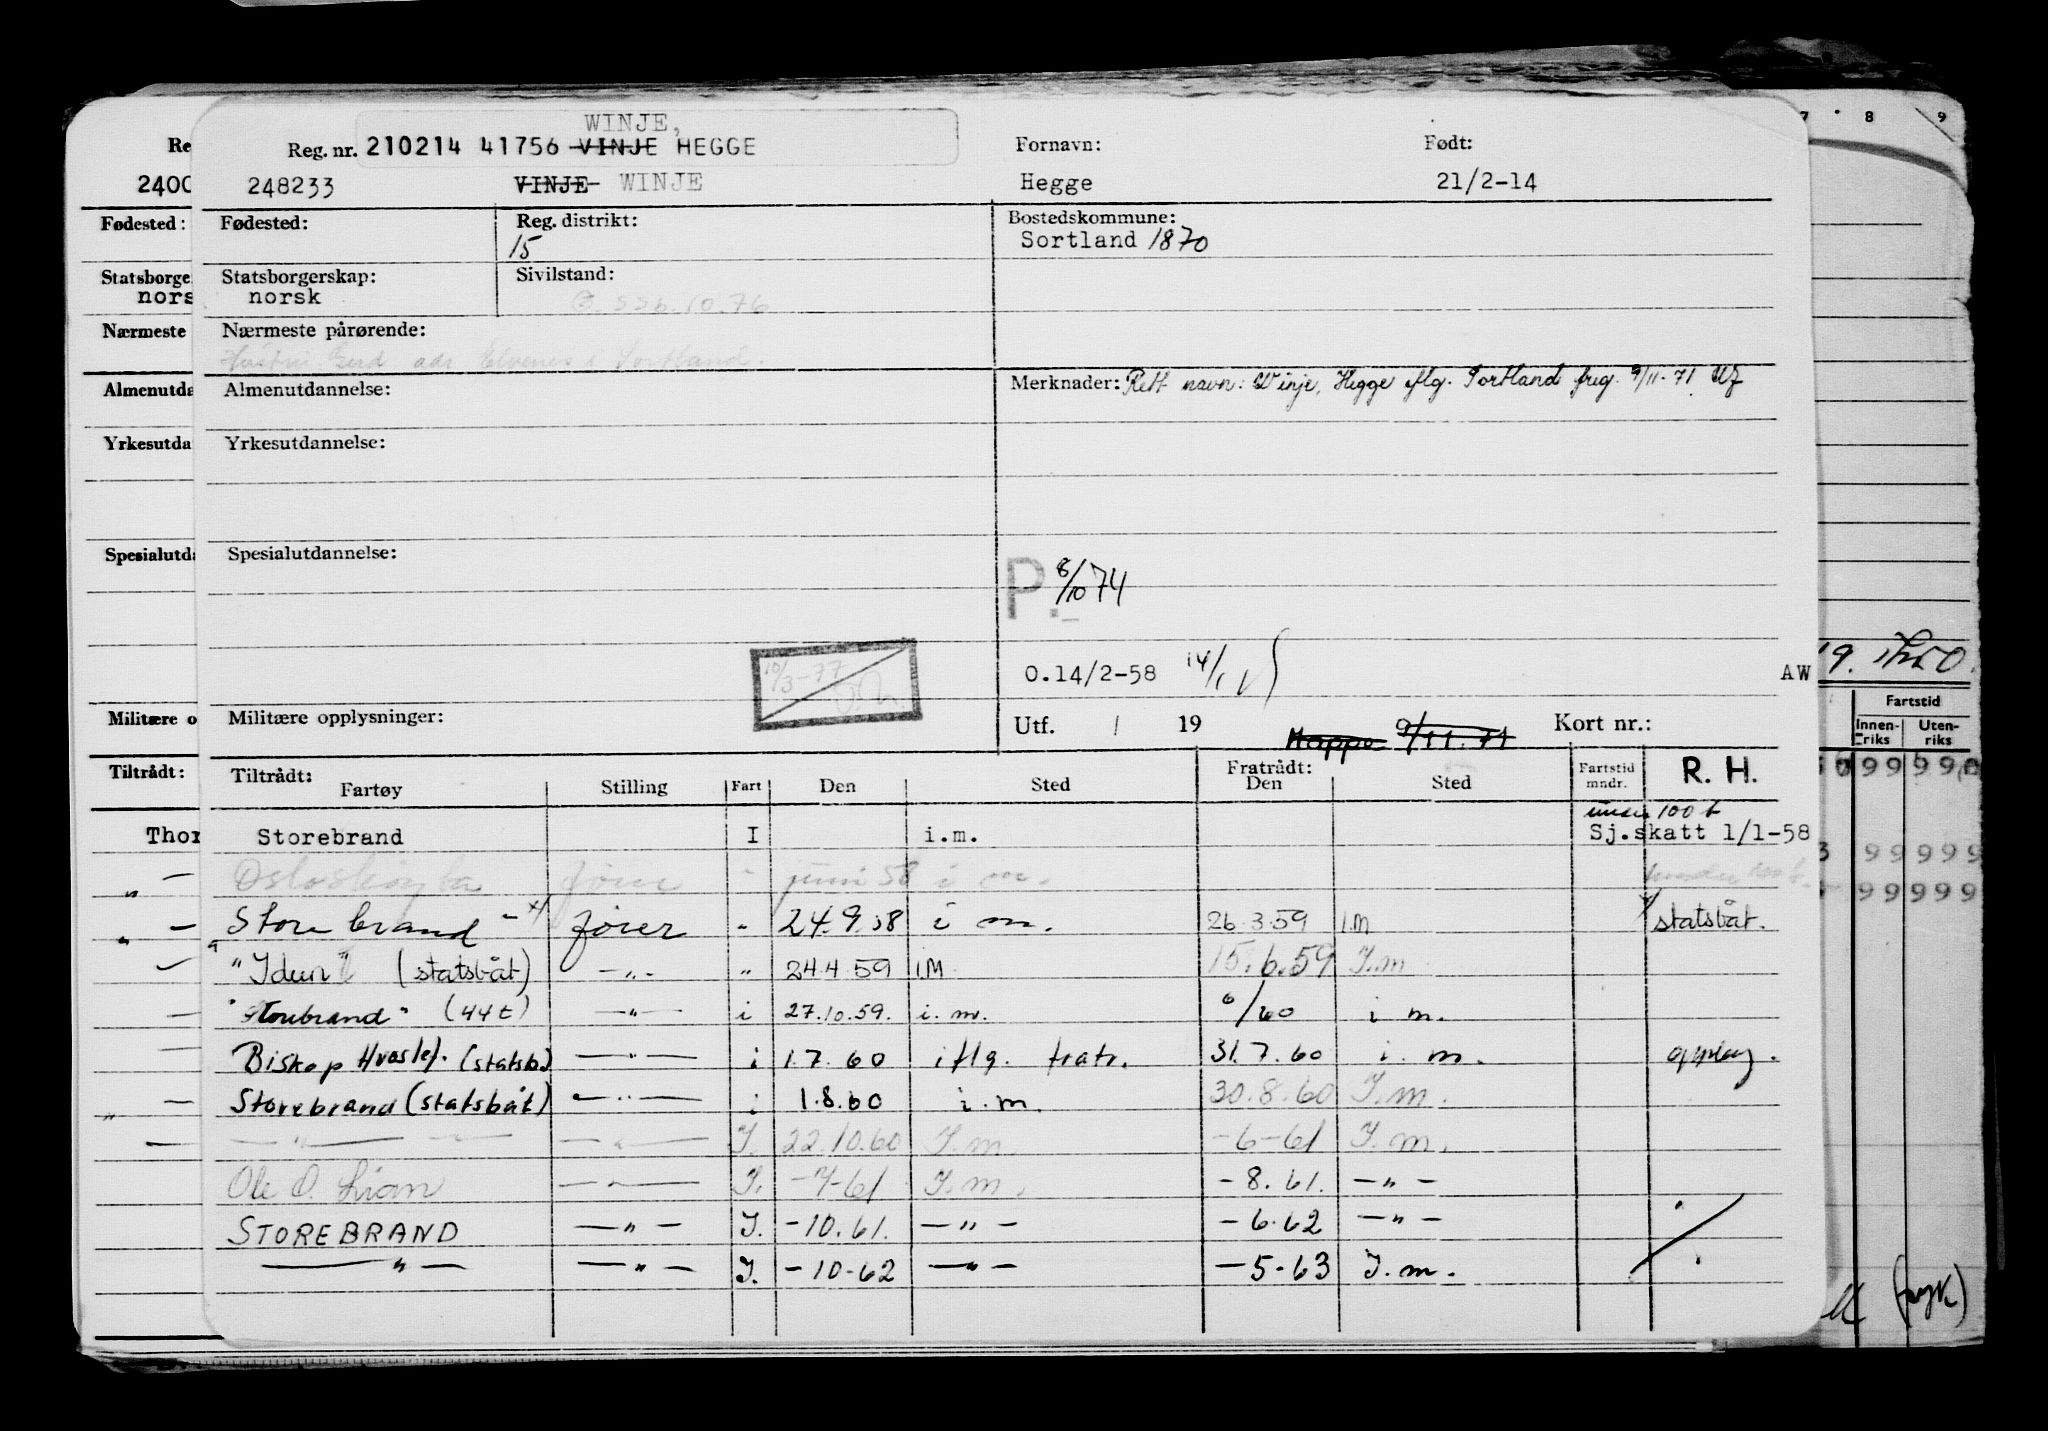 WINJE,
Reg. nr. 210214 41756 VINJE HEGGE
Fornavn: Født:
248233 VINJE WINJE Hegge 21/2-14
Fødested: Reg. distrikt: Bostedskommune:
15 Sortland 1870
Statsborgerskap: Sivilstand:
norsk
Nærmeste pårørende:
Hustru Gerd adr Elvenes i Sortland.
Almenutdannelse: Merknader: Rett navn: Winje, Hegge iflg. Sortland freg. 9/11-71
Yrkesutdannelse:
Spesialutdannelse:
P. 8/10 74
10/3-77
O.14/2-58 14/1 AW
Militære opplysninger: Utf. / 19 Mappe 9/11.71 Kort nr.:
Tiltrådt: Fratrådt: Fartstid R. H.
Fartøy Stilling Fart Den Sted Den Sted mndr.
under 100 t
Storebrand I i.m. Sj.skatt 1/1-58
Osloskøyta fører " juni 58 i m. under 100 t.
Storebrand - x/ fører " 24.9.58 i m. 26.3.59 I.M x/ statsbåt.
"Idun" (statsbåt) -"- " 24.4.59 I.M 15.6.59 I.m
"Storebrand" (44t) -"- i 27.10.59. i. m. 6/60 i m.
Biskop Hvoslef. (statsb) -"- i 1.7.60 iflg. fratr. 31.7.60 i. m. opplag.
Storebrand (statsbåt) -"- i 1.8.60 i.m. 30.8.60 I.m.
-"- -"- I. 22.10.60 I.m. -6-61 I.m.
Ole O. Lian -"- I. -7-61 I.m. -8.61. -"-
STOREBRAND -"- I. -10.61. -"- -6.62 -"-
-"- -"- I. -10-62 -"- -5-63 I.m.
Re
2400
Fødested:
Statsborge
nors
Nærmeste
Almenutda
Yrkesutda
Spesialutda
Militære o
Tiltrådt:
Thor
7 8 9
Fartstid
Innen-riks Uten-riks
99 99
99 999
99 999